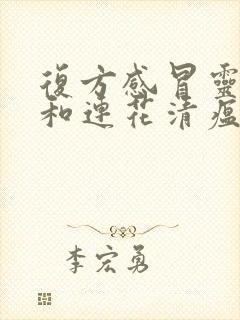 復方感冒靈
和連花清瘟
李宏勇